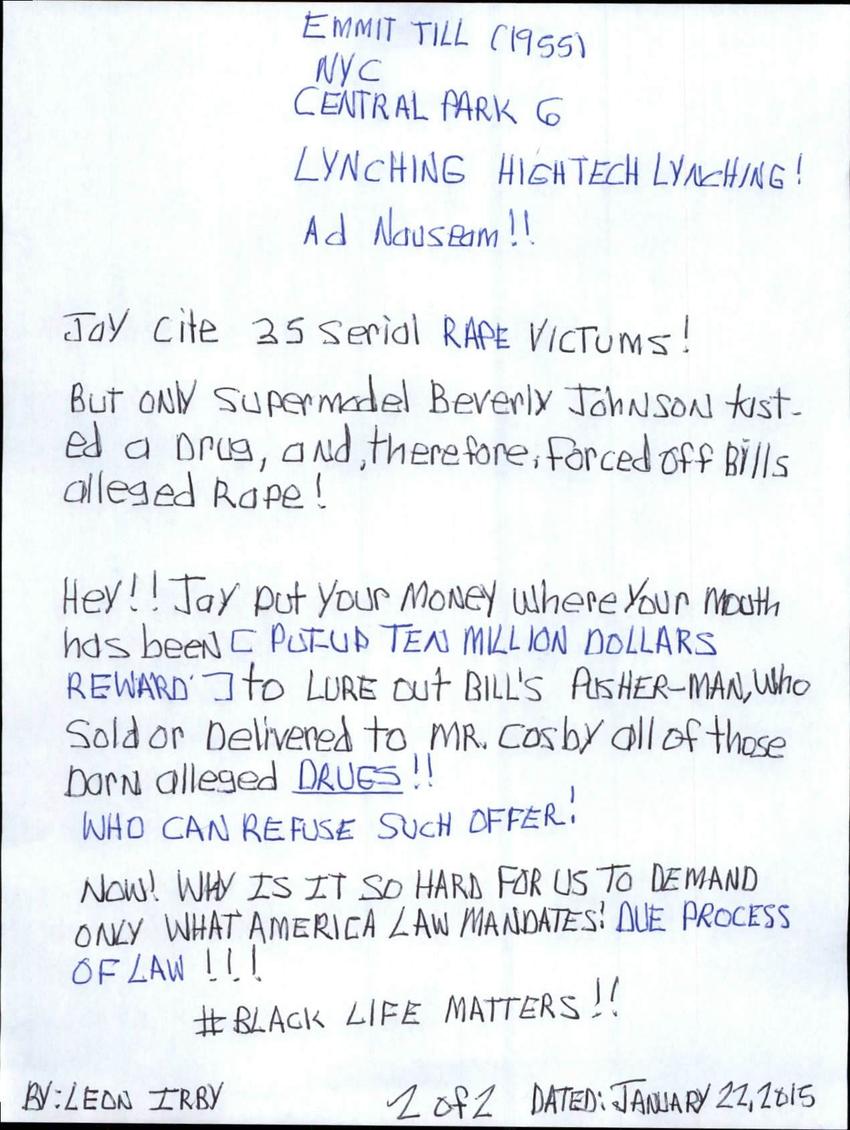 EMMIT TILL (1955)
NYC
CENTRAL PARK 6
LYNCHING HIGHTECH LYNCHING!
Ad Nauseam!!
Jay cite 35 serial RAPE VICTUMS!
But ONly supermodel Beverly Johnson tast-
ed a Drug, and, therefore, forced off Bills
alleged Rape!
Hey!! Jay put your Money where your mouth
has been [ PUT-UP TEN MILLION DOLLARS
REWARD ] to LURE out BILL'S PUSHER-MAN, Who
Sold or Delivered to MR. Cosby all of those
Darn alleged DRUGS!!
WHO CAN REFUSE SUCH OFFER!
NOW! WHY IS IT SO HARD FOR US TO DEMAND
ONLY WHAT AMERICA LAW MANDATES: DUE PROCESS
OF LAW !!!
# BLACK LIFE MATTERS!!
BY: LEON IRBY 2 of 2 DATED: JANUARY 22, 2015